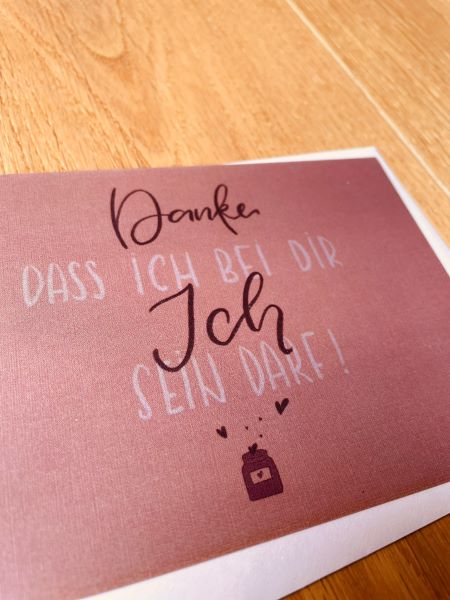 Danke
DASS ICH BEI DIR
Ich
SEIN DARF!